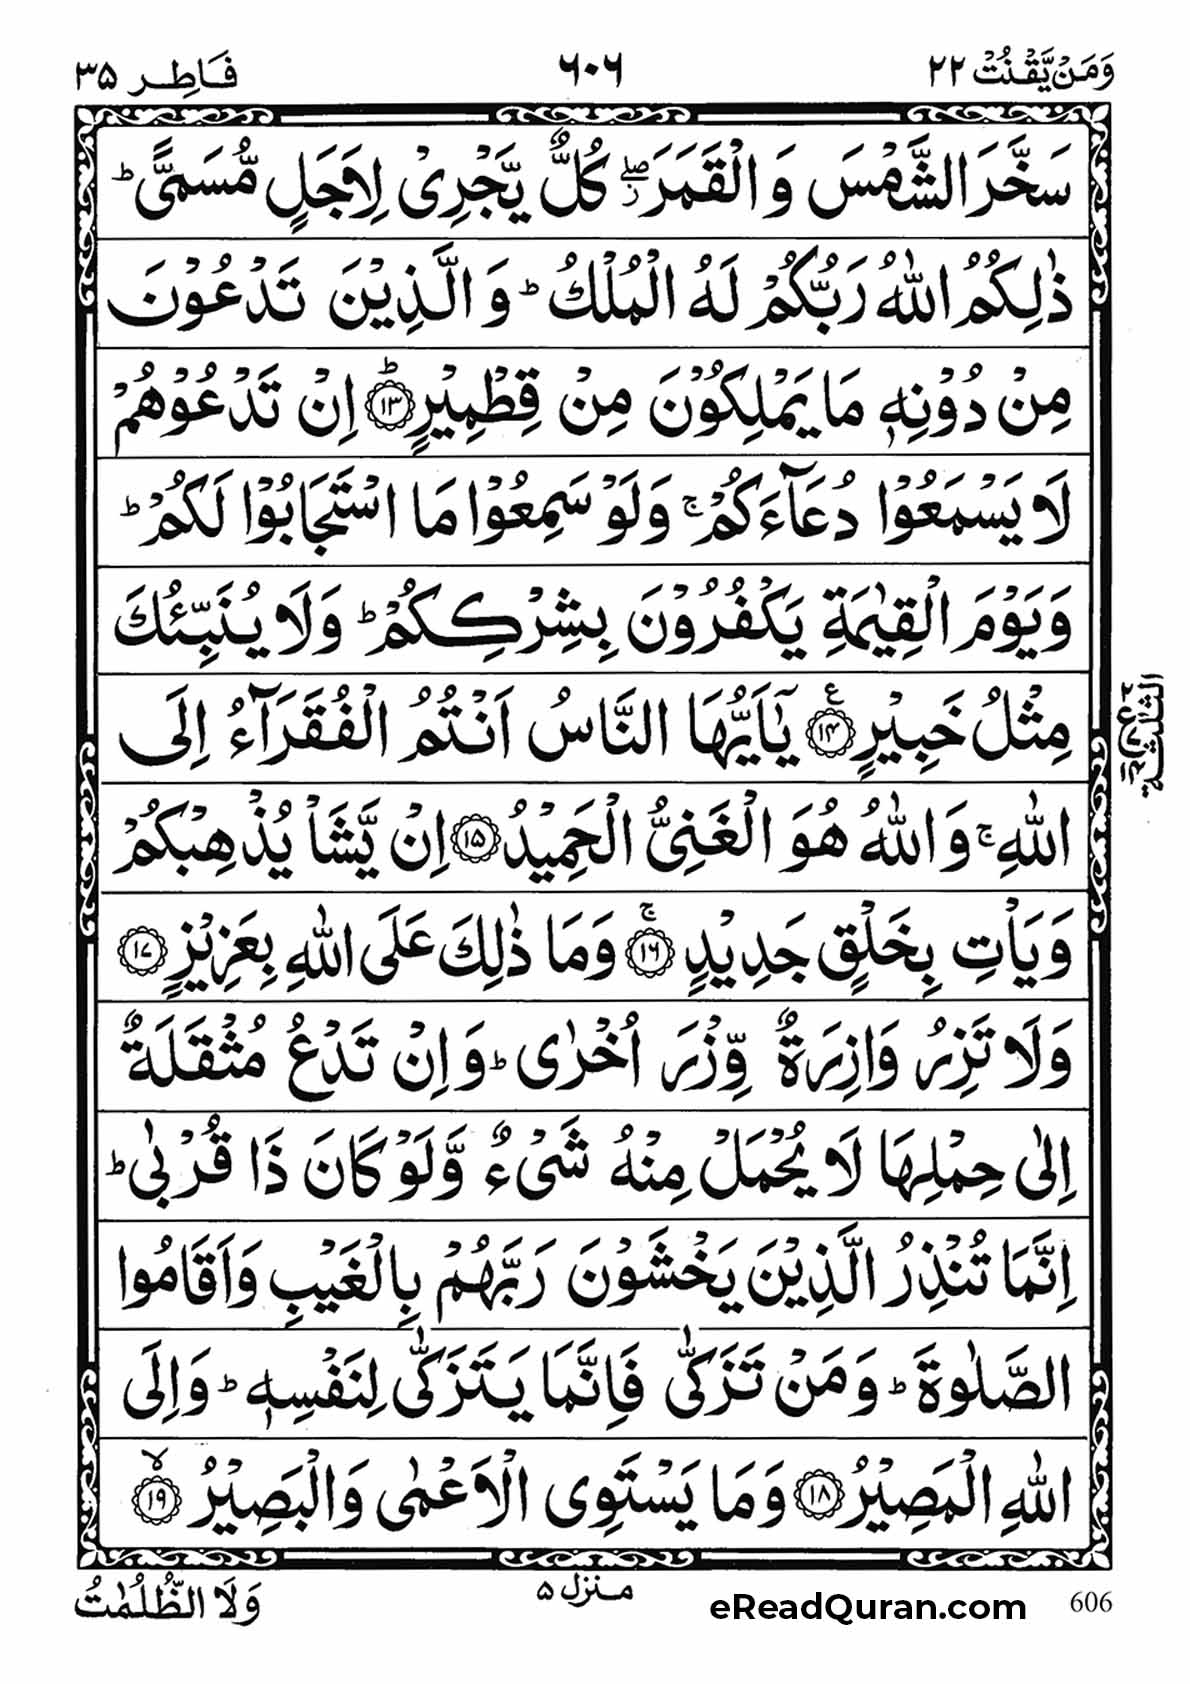 وَمَنْ يَّقْنُتْ ٢٢ ٦٠٦ فَاطِر ٣٥
سَخَّرَ الشَّمْسَ وَ الْقَمَرَ ۖ كُلٌّ يَّجْرِىْ لِاَجَلٍ مُّسَمًّى ؕ
ذٰلِكُمُ اللّٰهُ رَبُّكُمْ لَهُ الْمُلْكُ ؕ وَ الَّذِيْنَ تَدْعُوْنَ
مِنْ دُوْنِهٖ مَا يَمْلِكُوْنَ مِنْ قِطْمِيْرٍ ؕ ۝١٣ اِنْ تَدْعُوْهُمْ
لَا يَسْمَعُوْا دُعَآءَكُمْ ۚ وَلَوْ سَمِعُوْا مَا اسْتَجَابُوْا لَكُمْ ؕ
وَيَوْمَ الْقِيٰمَةِ يَكْفُرُوْنَ بِشِرْكِكُمْ ؕ وَلَا يُنَبِّئُكَ
مِثْلُ خَبِيْرٍ ۝١٤ ع يٰۤاَيُّهَا النَّاسُ اَنْتُمُ الْفُقَرَآءُ اِلَى
اللّٰهِ ۚ وَاللّٰهُ هُوَ الْغَنِىُّ الْحَمِيْدُ ۝١٥ اِنْ يَّشَاْ يُذْهِبْكُمْ
وَيَاْتِ بِخَلْقٍ جَدِيْدٍ ۚ ۝١٦ وَمَا ذٰلِكَ عَلَى اللّٰهِ بِعَزِيْزٍ ۝١٧
وَلَا تَزِرُ وَازِرَةٌ وِّزْرَ اُخْرٰى ؕ وَاِنْ تَدْعُ مُثْقَلَةٌ
اِلٰى حِمْلِهَا لَا يُحْمَلْ مِنْهُ شَىْءٌ وَّلَوْ كَانَ ذَا قُرْبٰى ؕ
اِنَّمَا تُنْذِرُ الَّذِيْنَ يَخْشَوْنَ رَبَّهُمْ بِالْغَيْبِ وَاَقَامُوا
الصَّلٰوةَ ؕ وَمَنْ تَزَكّٰى فَاِنَّمَا يَتَزَكّٰى لِنَفْسِهٖ ؕ وَاِلَى
اللّٰهِ الْمَصِيْرُ ۝١٨ وَمَا يَسْتَوِى الْاَعْمٰى وَالْبَصِيْرُ ۙ ۝١٩
الثلٰثة
وَلَا الظُّلُمٰتُ منزل ٥ eReadQuran.com 606